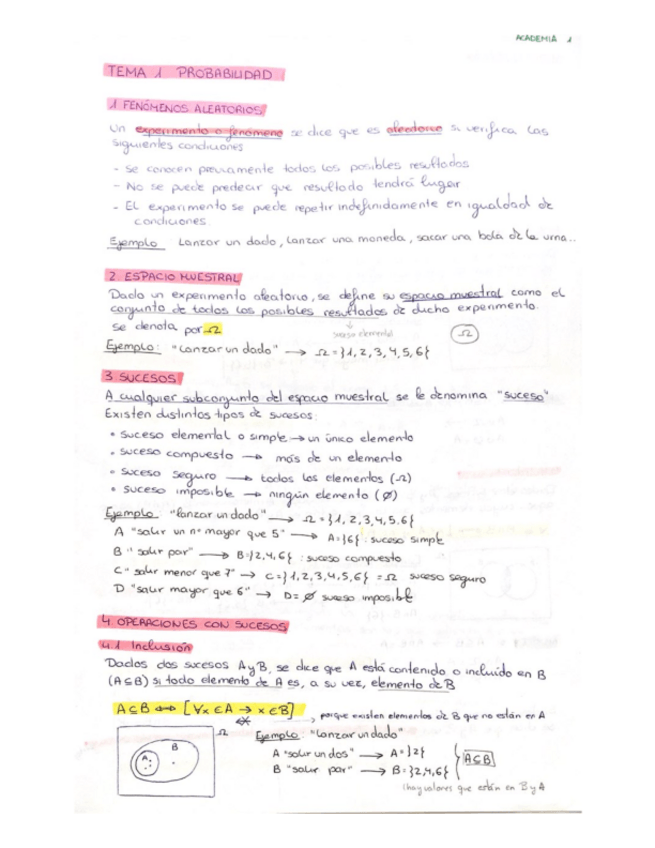 ACADEMIA 1
TEMA 1 PROBABILIDAD
1 FENÓMENOS ALEATORIOS
Un experimento o fenómeno se dice que es aleatorio si verifica las
siguientes condiciones
- Se conocen previamente todos los posibles resultados
- No se puede predecir que resultado tendrá lugar
- El experimento se puede repetir indefinidamente en igualdad de
condiciones.
Ejemplo Lanzar un dado, lanzar una moneda, sacar una bola de la urna...
2. ESPACIO MUESTRAL
Dado un experimento aleatorio, se define su espacio muestral como el
conjunto de todos los posibles resultados de dicho experimento.
se denota por Ω
↓
suceso elemental
Ω
Ejemplo: "Lanzar un dado" → Ω = {1, 2, 3, 4, 5, 6}
3. SUCESOS
A cualquier subconjunto del espacio muestral se le denomina "suceso"
Existen distintos tipos de sucesos:
• suceso elemental o simple → un único elemento
• suceso compuesto → más de un elemento
• suceso seguro → todos los elementos (Ω)
• suceso imposible → ningún elemento (Ø)
Ejemplo: "lanzar un dado" → Ω = {1, 2, 3, 4, 5. 6}
A "salir un nº mayor que 5" → A = {6} : suceso simple
B "salir par" → B = {2, 4, 6} : suceso compuesto
C "salir menor que 7" → C = {1, 2, 3, 4, 5, 6} = Ω suceso seguro
D "salir mayor que 6" → D = Ø suceso imposible
4. OPERACIONES CON SUCESOS
4.1 Inclusión
Dados dos sucesos A y B, se dice que A está contenido o incluido en B
(A⊆B) si todo elemento de A es, a su vez, elemento de B
A⊆B ⟺ [∀x∈A → x∈B]
⇎ → porque existen elementos de B que no están en A
Ω
B
A
Ejemplo: "Lanzar un dado"
A "salir un dos" → A = {2}
B "salir par" → B = {2, 4, 6}
A⊆B
(hay valores que están en B y A